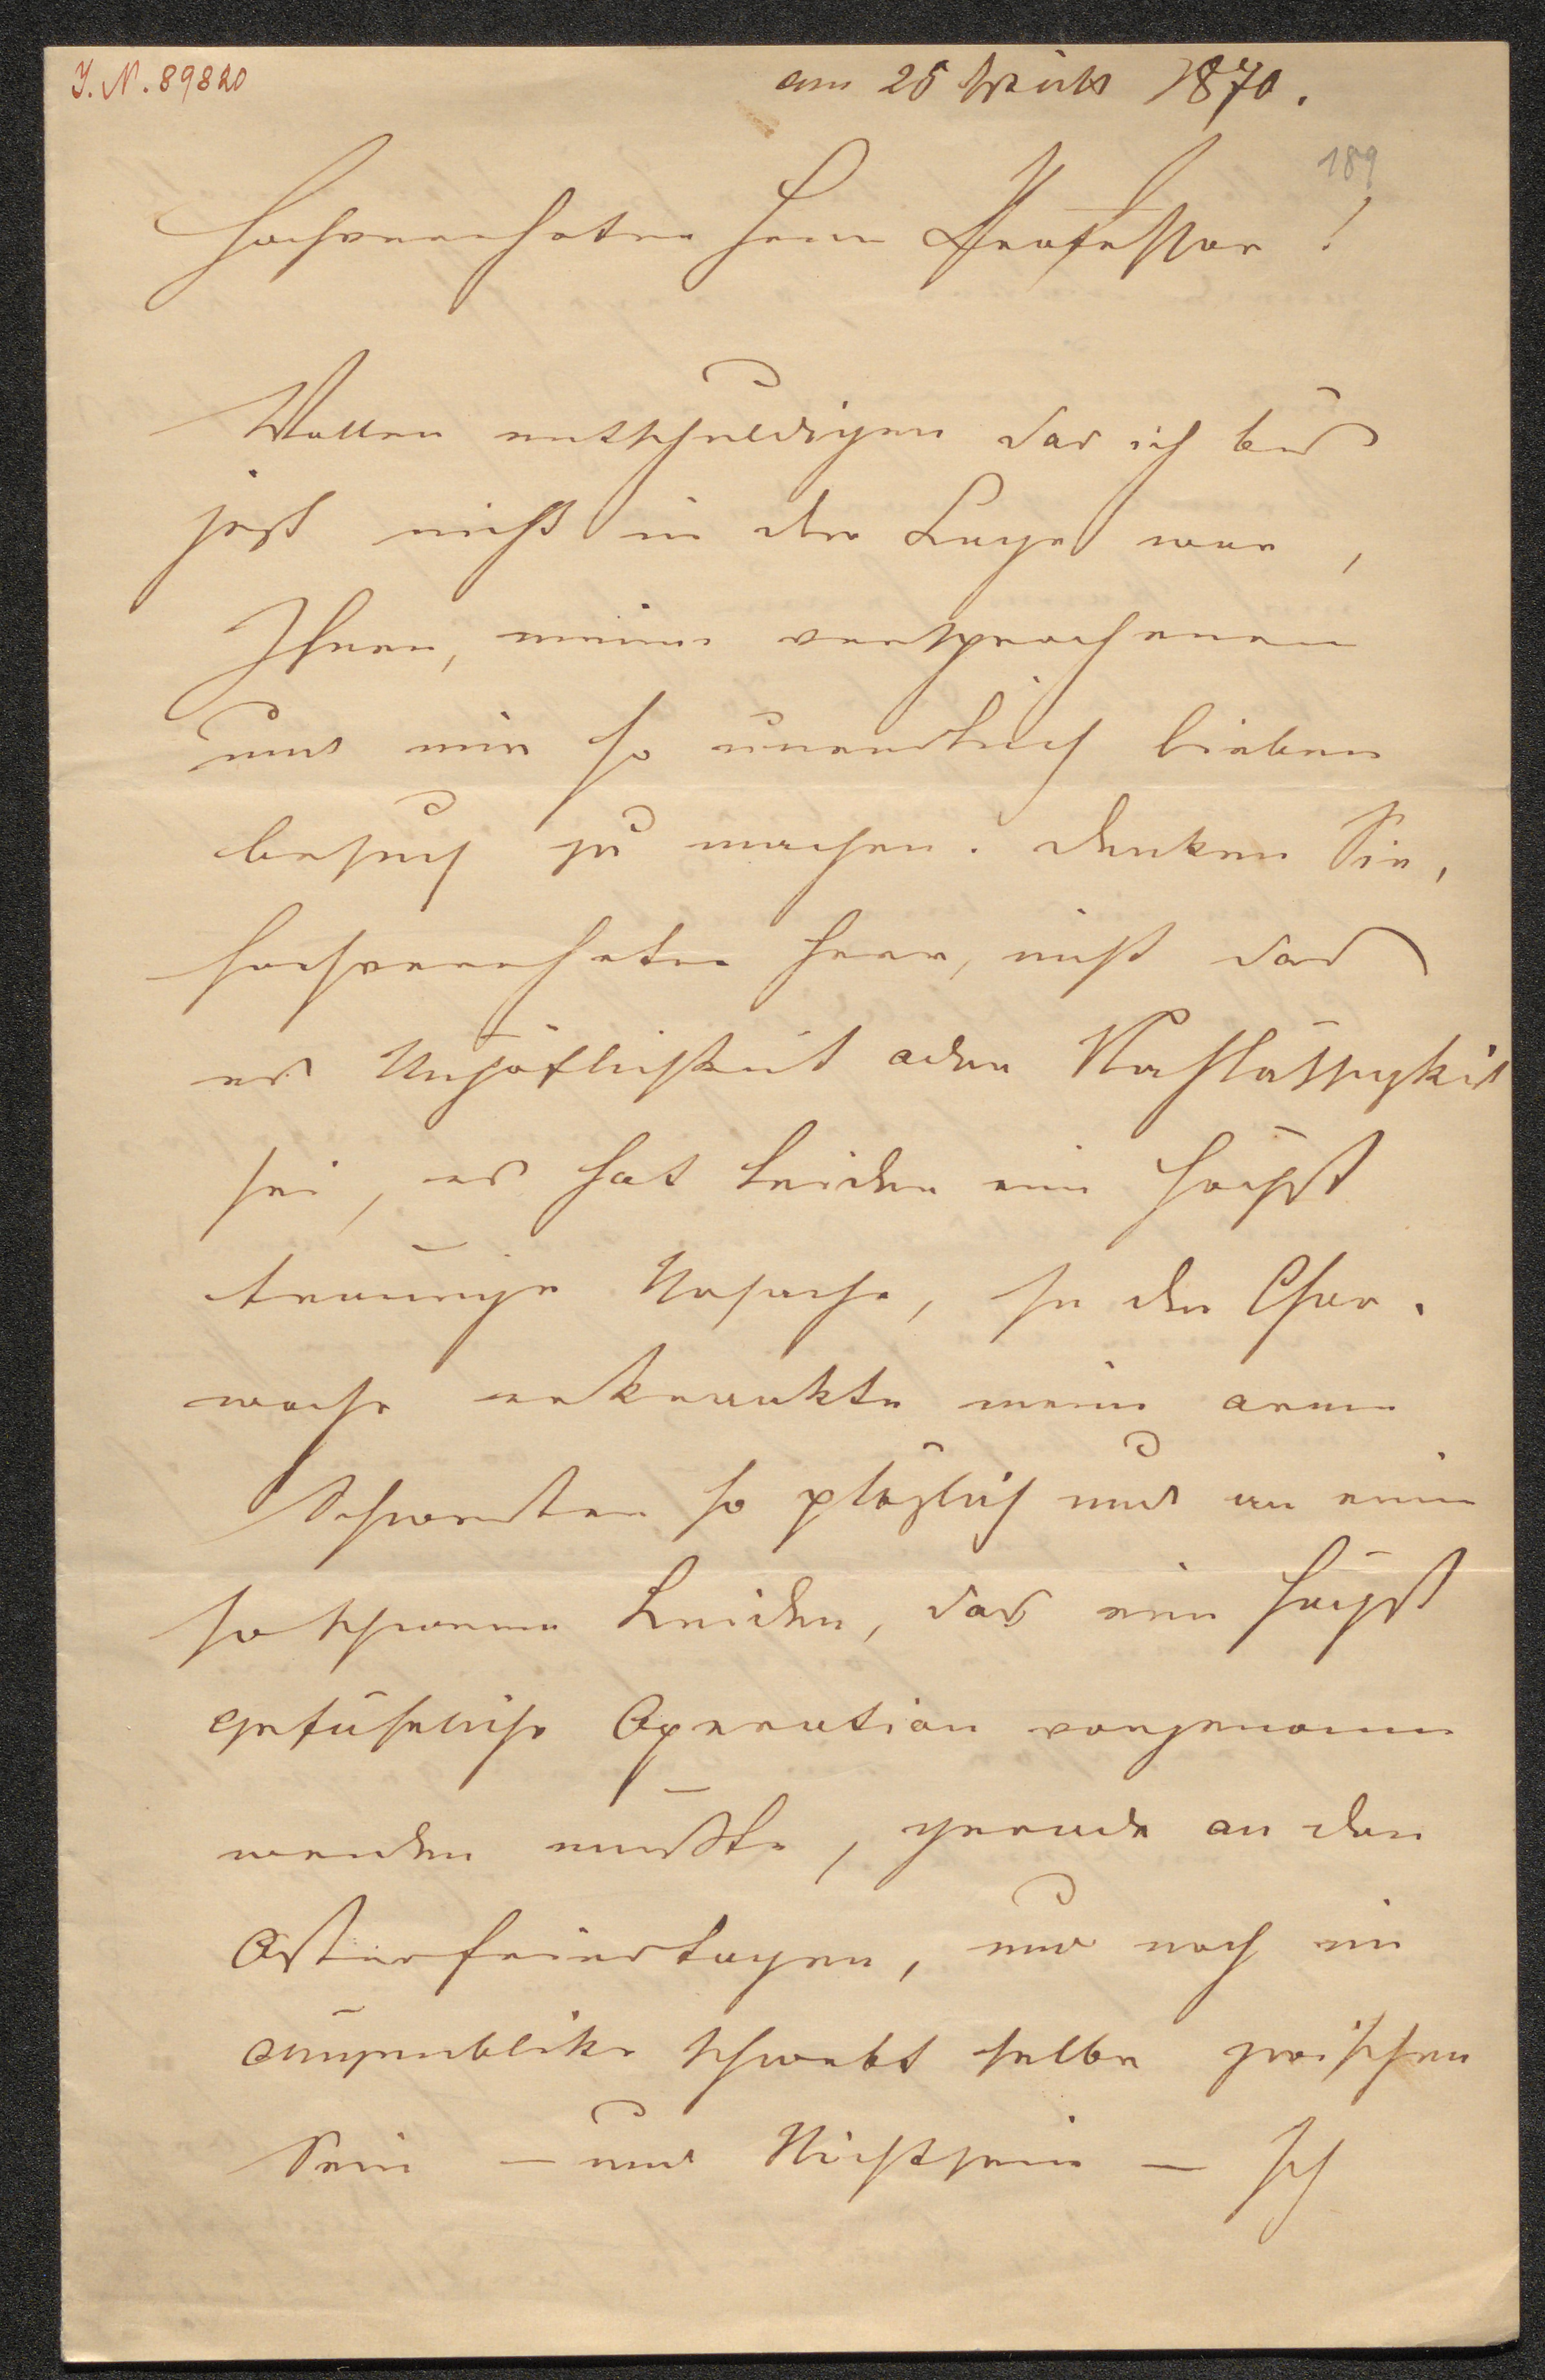 J. N. 89820
am 25 1870.
189
Hochverehrter Herr Professor!
Wollen entschuldigen das ich bis
jezt nicht in der Lage war,
Ihnen, meinen versprochenen
und mir so unendlich lieben
besuch zu machen. denken Sie,
hochverehrter Herr, nicht das
es Unhöflichkeit oder Nachlässigkeit
sei, es hat leider eine höchst
traurige Ursache, in der Char-
woche erkrankte meine arme
Schwester so plözlich und an einen
so schweren Leiden, das eine höchst
gefährliche Operation vorgenomen
werden mußte, gerade an den
Osterfeiertagen, und noch im
augenblike schwebt selbe zwischen
Sein – und Nichtsein – Ich